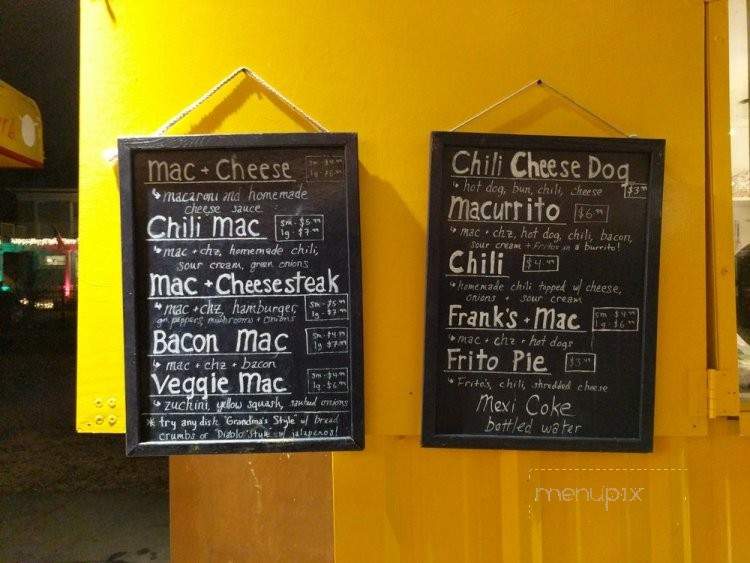 mac + Cheese
sm - $4.99
lg - $6.99
macaroni and homemade
cheese sauce
Chili Mac
sm - $5.99
lg - $7.99
mac + chz, homemade chili,
sour cream, green onions
Mac + Cheesesteak
sm - $5.99
lg - $7.99
mac + chz, hamburger,
grn peppers, mushrooms + onions
Bacon Mac
lg
mac + chz + bacon
Veggie Mac
sm - $4.99
lg - $6.99
zuchini, yellow squash, sauteed onions
* try any dish "Grandma's Style" w/ bread
crumbs or "Diablo" Style w/ jalapenos!
Chili Cheese Dog
$3.99
hot dog, bun, chili, cheese
Macurrito
$6.99
mac + chz, hot dog, chili, bacon,
sour cream + fritos in a burrito!
Chili
$4.99
homemade chili topped w/ cheese,
onions + sour cream
Frank's + Mac
sm $4.99
lg $6.99
mac + chz + hot dogs
Frito Pie
$3.99
Frito's, chili, shredded cheese
Mexi Coke
bottled water
menupix